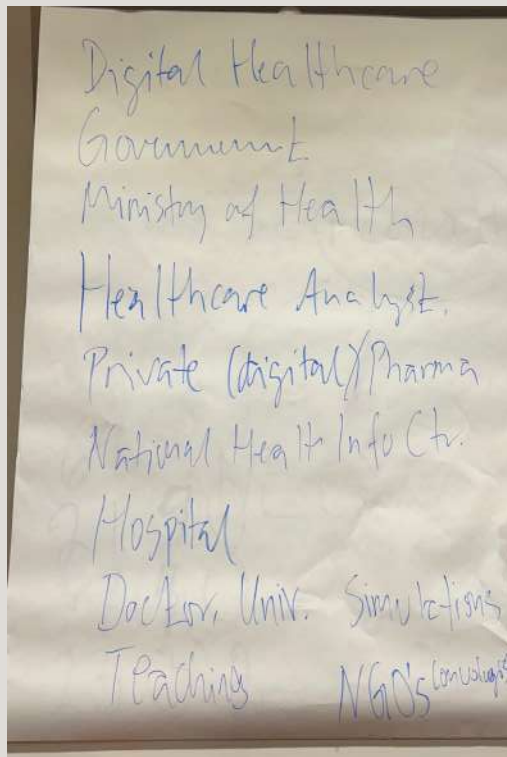 Digital Healthcare
Government
Ministry of Health
Healthcare Analyst.
Private (digital)/Pharma
National Health Info Ctr.
Hospital
Doctor, Univ. Simulations
Teaching NGO's